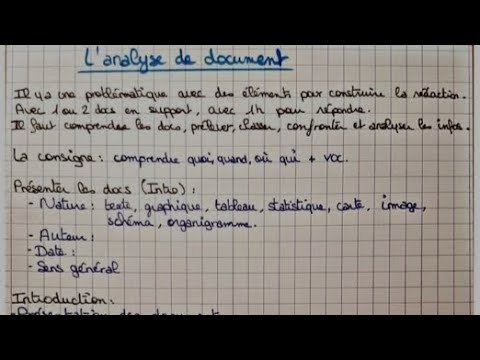 L'analyse de document
Il y a une problématique avec des éléments pour construire la rédaction.
Avec 1 ou 2 docs en support, avec 1h pour répondre.
Il faut comprendre les docs, prélever, classer, confronter et analyser les infos.
La consigne : comprendre quoi, quand, où qui + voc.
Présenter les docs (Intro) :
- Nature : texte, graphique, tableau, statistique, carte, image,
schéma, organigramme.
- Auteur :
- Date :
- Sens général
Introduction :
- Présentation des document